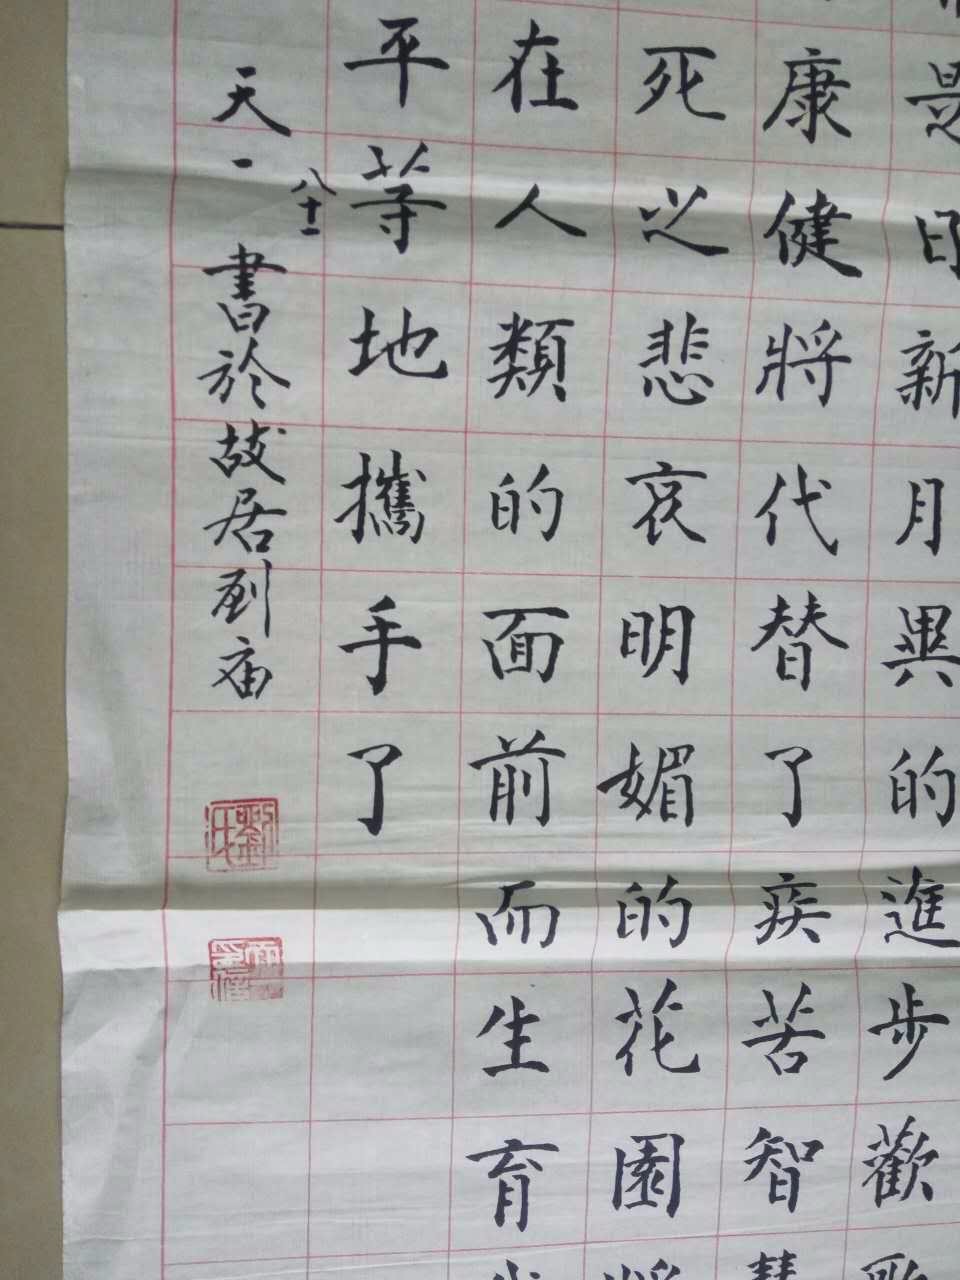 是日新月異的進步歡歌
康健將代替了疾苦智慧
死之悲哀明媚的花園將
在人類的面前而生育
平等地攜手了
天一
八十一
書於故居劉庙